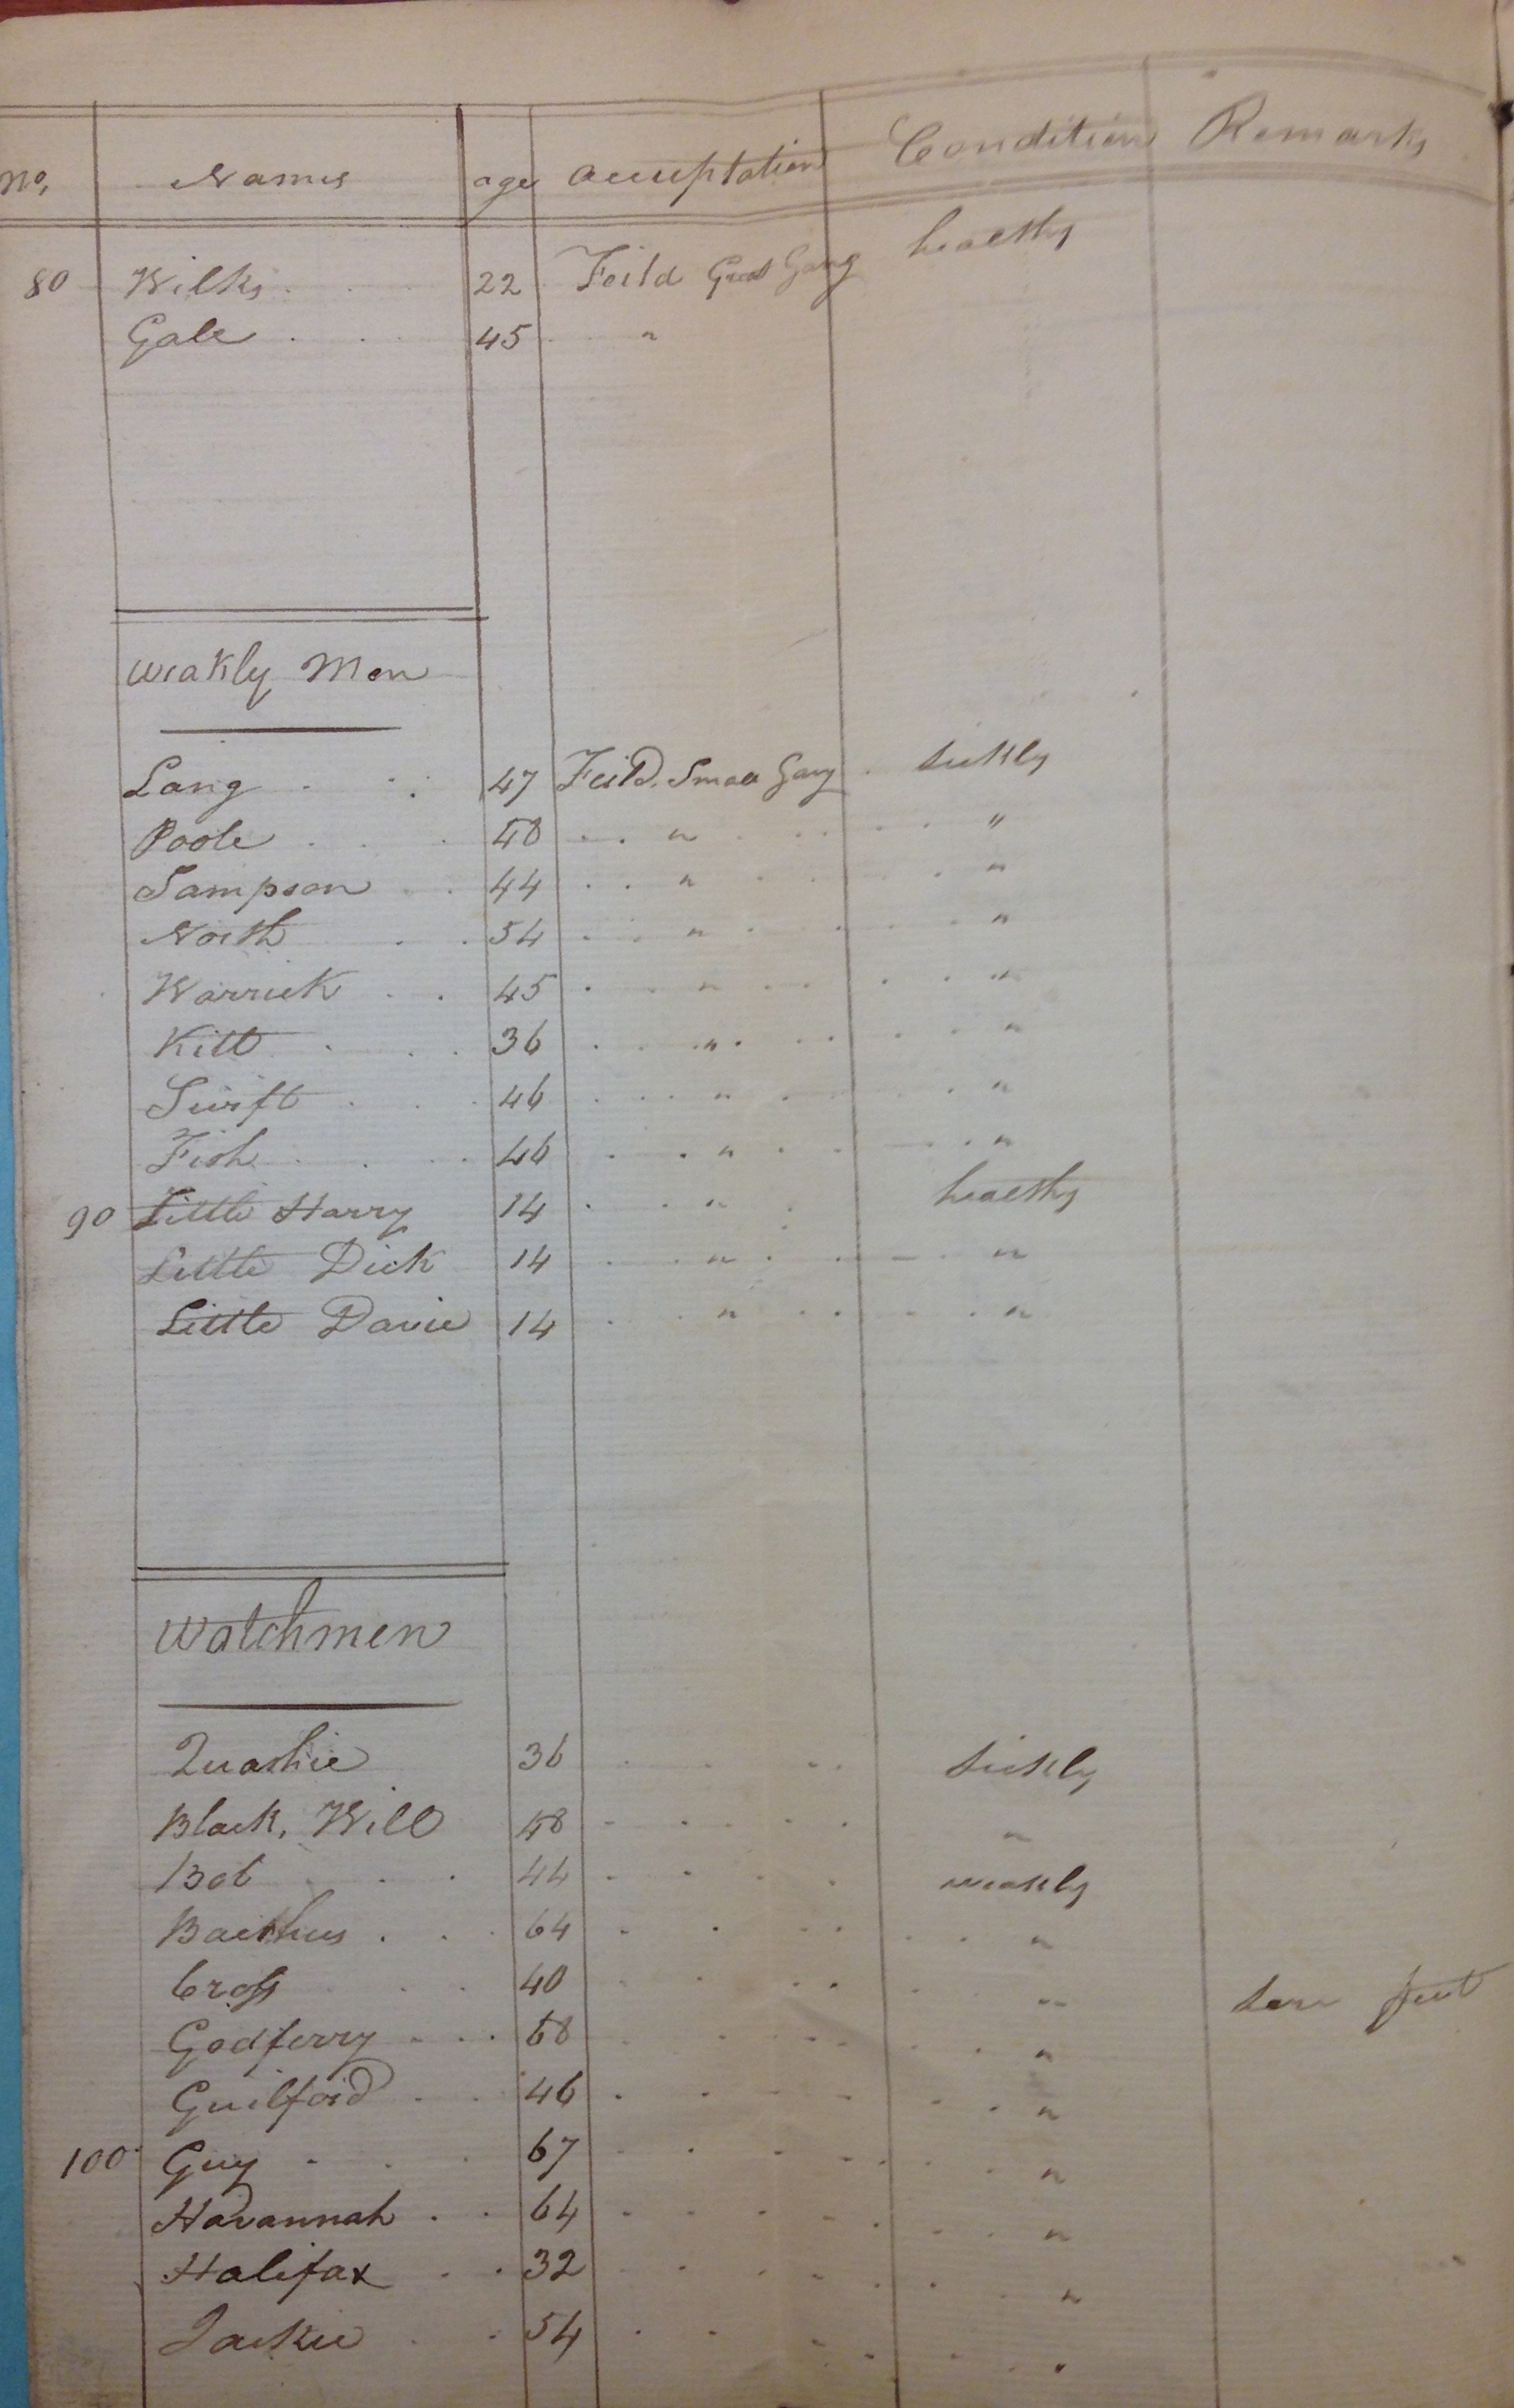 No. Names age accuptation Condition Remarks
80 Wilks 22 Feild Great Gang healthy
Gale 45 "
weakly Men
Lang 47 Feild Small Gang sickly
Poole 48 " "
Sampson 44 " "
North 54 " "
Warrick 45 " "
Kitt 36 " "
Swift 46 " "
Fish 46 " "
90 Little Harry 14 " healthy
Little Dick 14 " "
Little Davie 14 " "
Watchmen
Quashie 36 sickly
Black, Will 48 "
Bob 44 weakly
Bacchus 64 "
Cross 40 " sore feet
Godferry 68 "
Guilford 46 "
100 Guy 67 "
Havannah 64 "
Halifax 32 "
Jackie 54 "